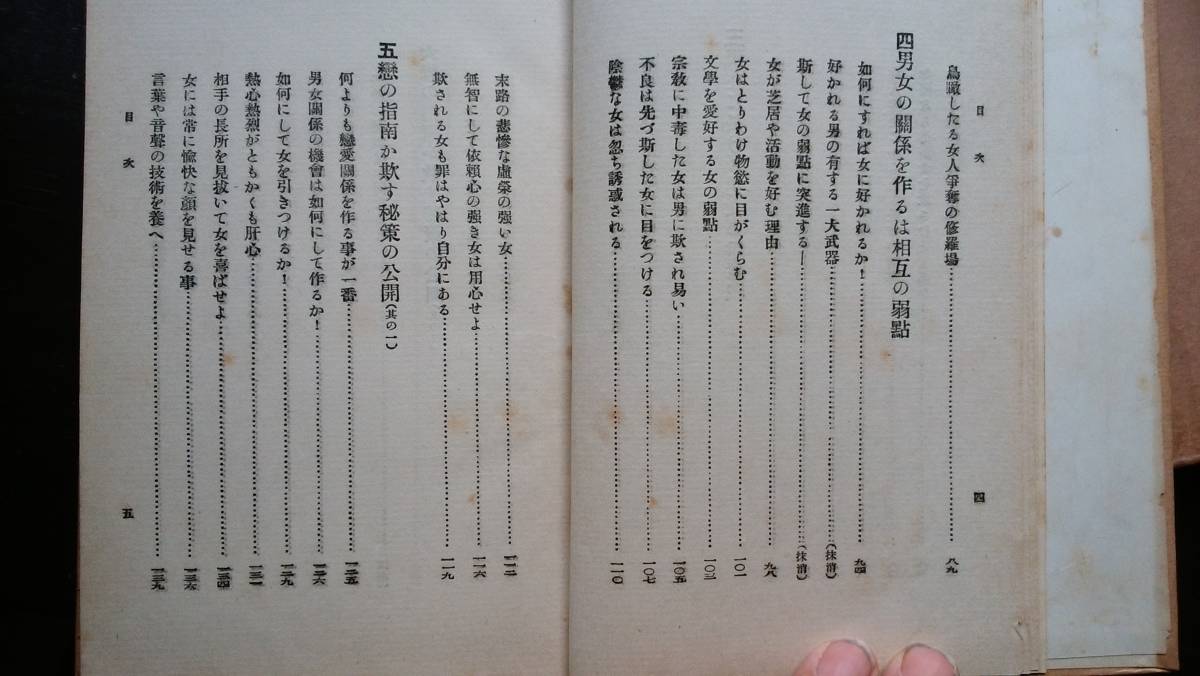 目次
四
鳥瞰したる女人爭奪の修羅場…………八九
四男女の關係を作るは相互の弱點
如何にすれば女に好かれるか!…………九四
好かれる男の有する一大武器…………(抹消)
斯して女の弱點に突進する—…………(抹消)
女が芝居や活動を好む理由…………九八
女はとりわけ物慾に目がくらむ…………一〇一
文學を愛好する女の弱點…………一〇三
宗敎に中毒した女は男に欺され易い…………一〇五
不良は先づ斯した女に目をつける…………一〇七
陰鬱な女は忽ち誘惑される…………一一〇
末路の悲慘な虛榮の强い女…………一一二
無智にして依賴心の强き女は用心せよ…………一一六
欺される女も罪はやはり自分にある…………一一九
五戀の指南か欺す秘策の公開(其の一)
何よりも戀愛關係を作る事が一番…………一二五
男女關係の機會は如何にして作るか!…………一二六
如何にして女を引きつけるか!…………一二九
熱心熱烈がともかくも肝心…………一三一
相手の長所を見拔いて女を喜ばせよ…………一三四
女には常に愉快な顏を見せる事…………一三六
言葉や音聲の技術を養へ…………一三九
目次
五